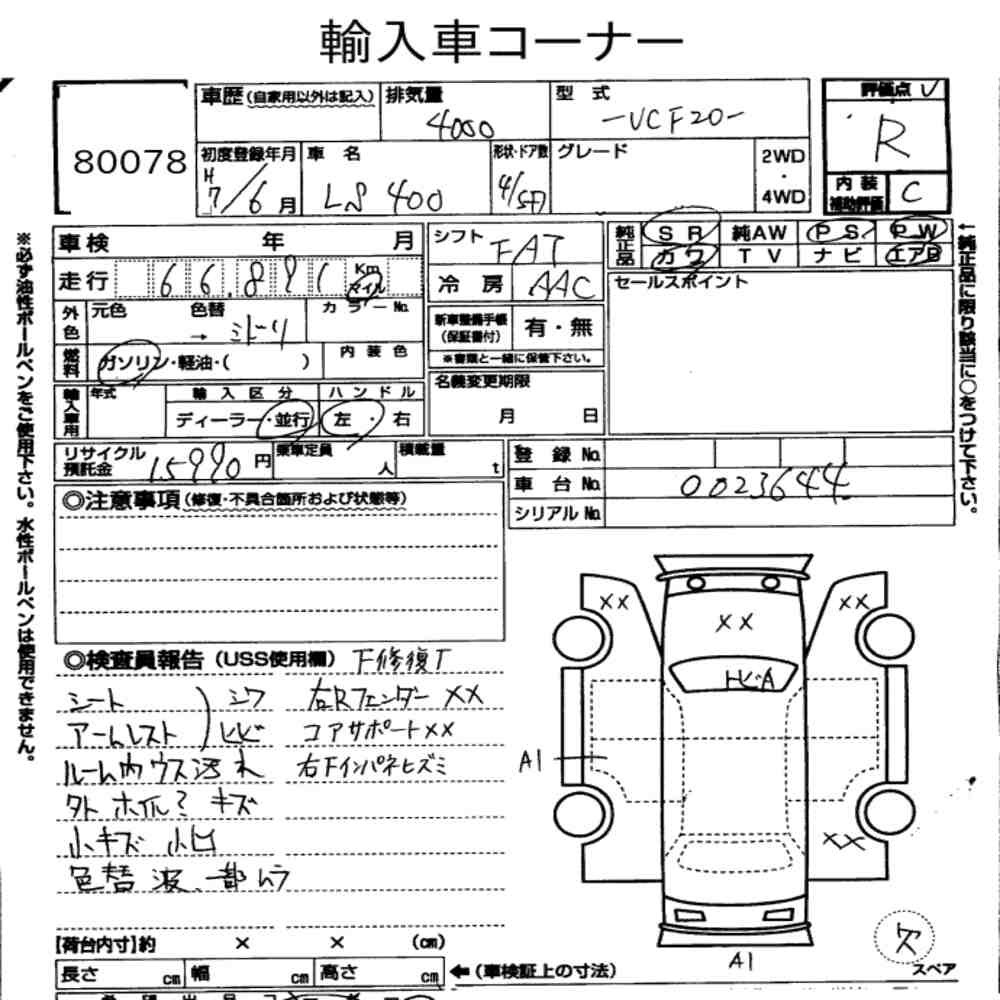 輸入車コーナー
80078
車歴(自家用以外は記入)
排気量
4000
型式
-UCF20-
評価点
R
初度登録年月
H7/6月
車名
LS 400
形状・ドア数
4/SD
グレード
2WD・4WD
内装補助評価
C
車検 年 月
走行 66,891 Km マイル
シフト FAT
冷房 AAC
純正品
SR 純AW PS PW
カワ TV ナビ エアB
セールスポイント
外色
元色 色替 → ミドリ
カラーNo.
燃料
ガソリン・軽油・( )
内装色
新車整備手帳(保証書付)
有・無
※書類と一緒に保管下さい。
輸入車用
年式
輸入区分
ディーラー・並行
ハンドル
左・右
名義変更期限
月 日
リサイクル預託金 15990円
乗車定員 人
積載量 t
登録No.
車台No. 0023644
シリアルNo.
※必ず油性ボールペンをご使用下さい。水性ボールペンは使用できません。
←純正品に限り該当に○をつけて下さい。
◎注意事項(修復・不具合箇所および状態等)
◎検査員報告(USS使用欄)
シート シワ
アームレスト ヒビ
ルーム内ウス汚れ
外 ホイル ミ キズ
小キズ 小凹
色替 波、一部ムラ
F修復
右Rフェンダー XX
コアサポートXX
右Fインパネヒズミ
XX
XX
XX
トビA
A1
XX
A1
欠
スペア
【荷台内寸】約 × × (cm)
長さ cm 幅 cm 高さ cm
←(車検証上の寸法)